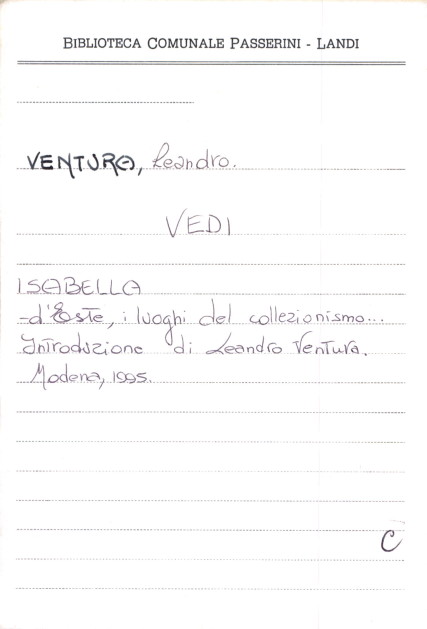 BIBLIOTECA COMUNALE PASSERINI - LANDI
VENTURA, Leandro.
VEDI
ISABELLA
-d'Este, i luoghi del collezionismo...
Introduzione di Leandro Ventura.
Modena, 1995.
C